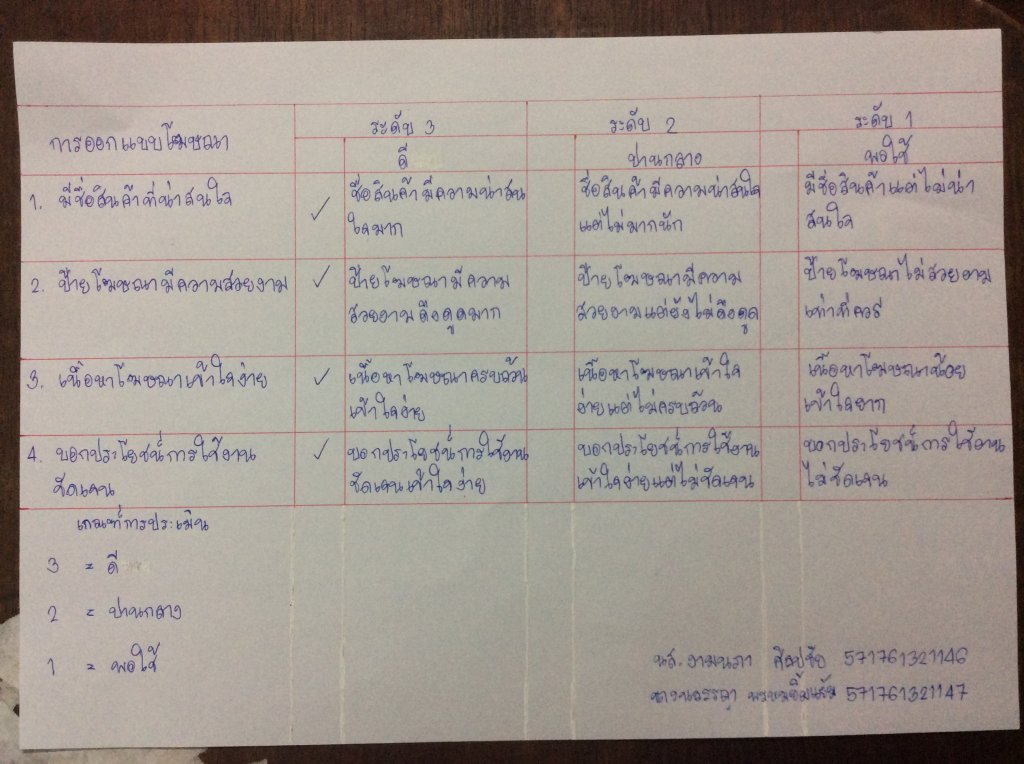 การออกแบบโฆษณา
ระดับ 3
ระดับ 2
ระดับ 1
ดี
ปานกลาง
พอใช้
1. มีชื่อสินค้าที่น่าสนใจ
✓
ชื่อสินค้ามีความน่าสน
ใจมาก
ชื่อสินค้ามีความน่าสนใจ
แต่ไม่มากนัก
มีชื่อสินค้าแต่ไม่น่า
สนใจ
2. ป้ายโฆษณามีความสวยงาม
✓
ป้ายโฆษณามีความ
สวยงามดึงดูดมาก
ป้ายโฆษณามีความ
สวยงามแต่ยังไม่ดึงดูด
ป้ายโฆษณาไม่สวยงาม
เท่าที่ควร
3. เนื้อหาโฆษณาเข้าใจง่าย
✓
เนื้อหาโฆษณาครบถ้วน
เข้าใจง่าย
เนื้อหาโฆษณาเข้าใจ
ง่ายแต่ไม่ครบถ้วน
เนื้อหาโฆษณาน้อย
เข้าใจยาก
4. บอกประโยชน์การใช้งาน
ชัดเจน
✓
บอกประโยชน์การใช้งาน
ชัดเจนเข้าใจง่าย
บอกประโยชน์การใช้งาน
เข้าใจง่ายแต่ไม่ชัดเจน
บอกประโยชน์การใช้งาน
ไม่ชัดเจน
เกณฑ์การประเมิน
3 = ดี
2 = ปานกลาง
1 = พอใช้
นส. งามนภา 571761321146
571761321147